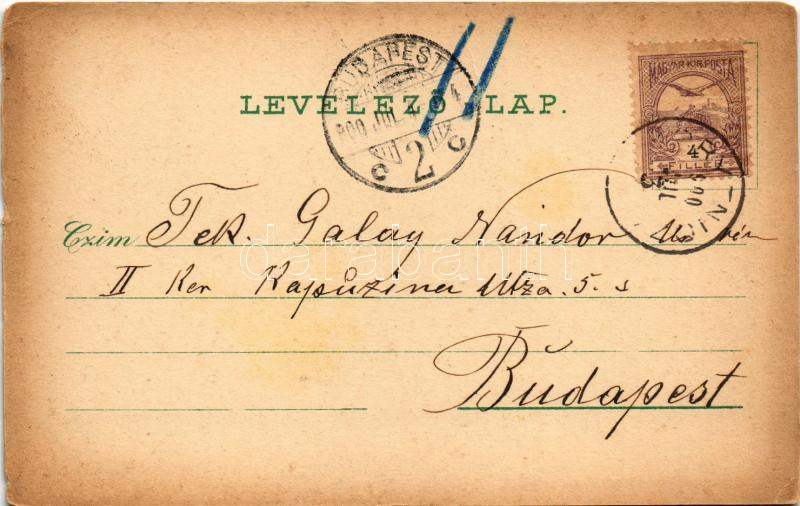 BUDAPEST
900 JUL 4
2
C C
LEVELEZŐ LAP.
MAGYAR KIR. POSTA
FILLÉR
900
Czim Tek. Galay Nándor
II Ker Kapuzina Utza. 5. s
Budapest
darabanth